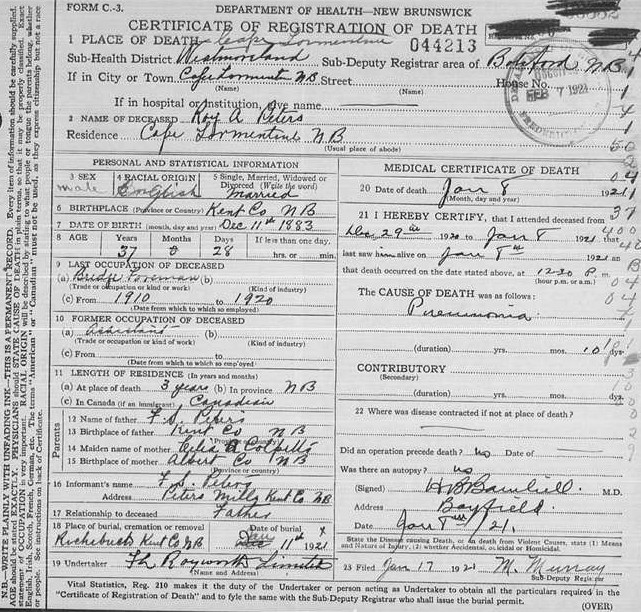 FORM C.-3.
DEPARTMENT OF HEALTH—NEW BRUNSWICK
CERTIFICATE OF REGISTRATION OF DEATH
1 PLACE OF DEATH Cape Tormentine 044213
Sub-Health District Westmoreland Sub-Deputy Registrar area of Botsford N.B.
If in City or Town Cape Tormentine NB Street House No.
(Name) (Name)
If in hospital or institution, give name
2 NAME OF DECEASED Roy A Peters
Residence Cape Tormentine NB
(Usual place of abode)
FEB 7 1921
PERSONAL AND STATISTICAL INFORMATION
3 SEX male 4 RACIAL ORIGIN English 5 Single, Married, Widowed or Divorced (Write the word) Married
6 BIRTHPLACE (Province or Country) Kent Co NB
7 DATE OF BIRTH (month, day and year) Dec 11th 1883
8 AGE Years 37 Months 0 Days 28 If less than one day. hrs. or min.
9 LAST OCCUPATION OF DECEASED
(a) Bridge Foreman (b)
(Trade or occupation or kind of work) (Kind of industry)
(c) From 1910 to 1920
(Date from which to which so employed)
10 FORMER OCCUPATION OF DECEASED
(a) Assistant (b)
(Trade or occupation or kind of work) (Kind of industry)
(c) From to
(Date from which to which so employed)
11 LENGTH OF RESIDENCE (In years and months)
(a) At place of death 3 years (b) In province NB
(c) In Canada (if an immigrant) Canadian
Parents
12 Name of father F.S. Peters
13 Birthplace of father Kent Co NB
(Province or country)
14 Maiden name of mother Celia Colpitts
15 Birthplace of mother Albert Co NB
(Province or country)
16 Informant's name F.S. Peters
Address Peters Mills Kent Co NB
17 Relationship to deceased Father
18 Place of burial, cremation or removal Date of burial
Richibucto Kent Co NB Jan 11th 1921
19 Undertaker Limited
(Name and Address)
MEDICAL CERTIFICATE OF DEATH
20 Date of death Jan 8 1921
(Month, day and year)
21 I HEREBY CERTIFY, that I attended deceased from
Dec 29th 1920 to Jan 8 1921 that I
last saw him alive on Jan 8th 1921 an
that death occurred on the date stated above, at 12-30 P. m.
(hour p.m. or a.m.)
The CAUSE OF DEATH was as follows:
Pneumonia
(duration) yrs. mos. 10
CONTRIBUTORY
(Secondary)
(duration) yrs. mos.
22 Where was disease contracted if not at place of death?
Did an operation precede death? no Date of
Was there an autopsy? no
(Signed) M.D.
Address Bayfield
Date Jan 8th /21
State the Disease causing Death, or in death from Violent Causes, state (1) Means and Nature of Injury, (2) whether Accidental, Suicidal or Homicidal.
23 Filed Jan 17 1921 M. Murray
Sub-Deputy Registrar
Vital Statistics, Reg. 210 makes it the duty of the Undertaker or person acting as Undertaker to obtain all the particulars required in the
"Certificate of Registration of Death" and to fyle the same with the Sub-Deputy Registrar who shall issue the burial permit.
(OVER)